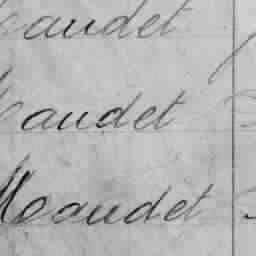 eaudet
eaudet
Meaudet